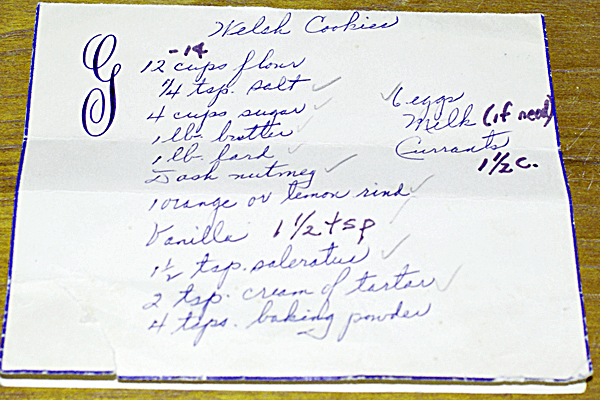 Welsh Cookies
G
-14
12 cups flour
1/4 tsp. salt
4 cups sugar
1 lb. butter
1 lb. lard
Dash nutmeg
1 orange or lemon rind
Vanilla 1 1/2 tsp
1 1/2 tsp. saleratus
2 tsp. cream of tartar
4 tsps. baking powder
6 eggs
Milk (if need)
Currants
1 1/2 c.